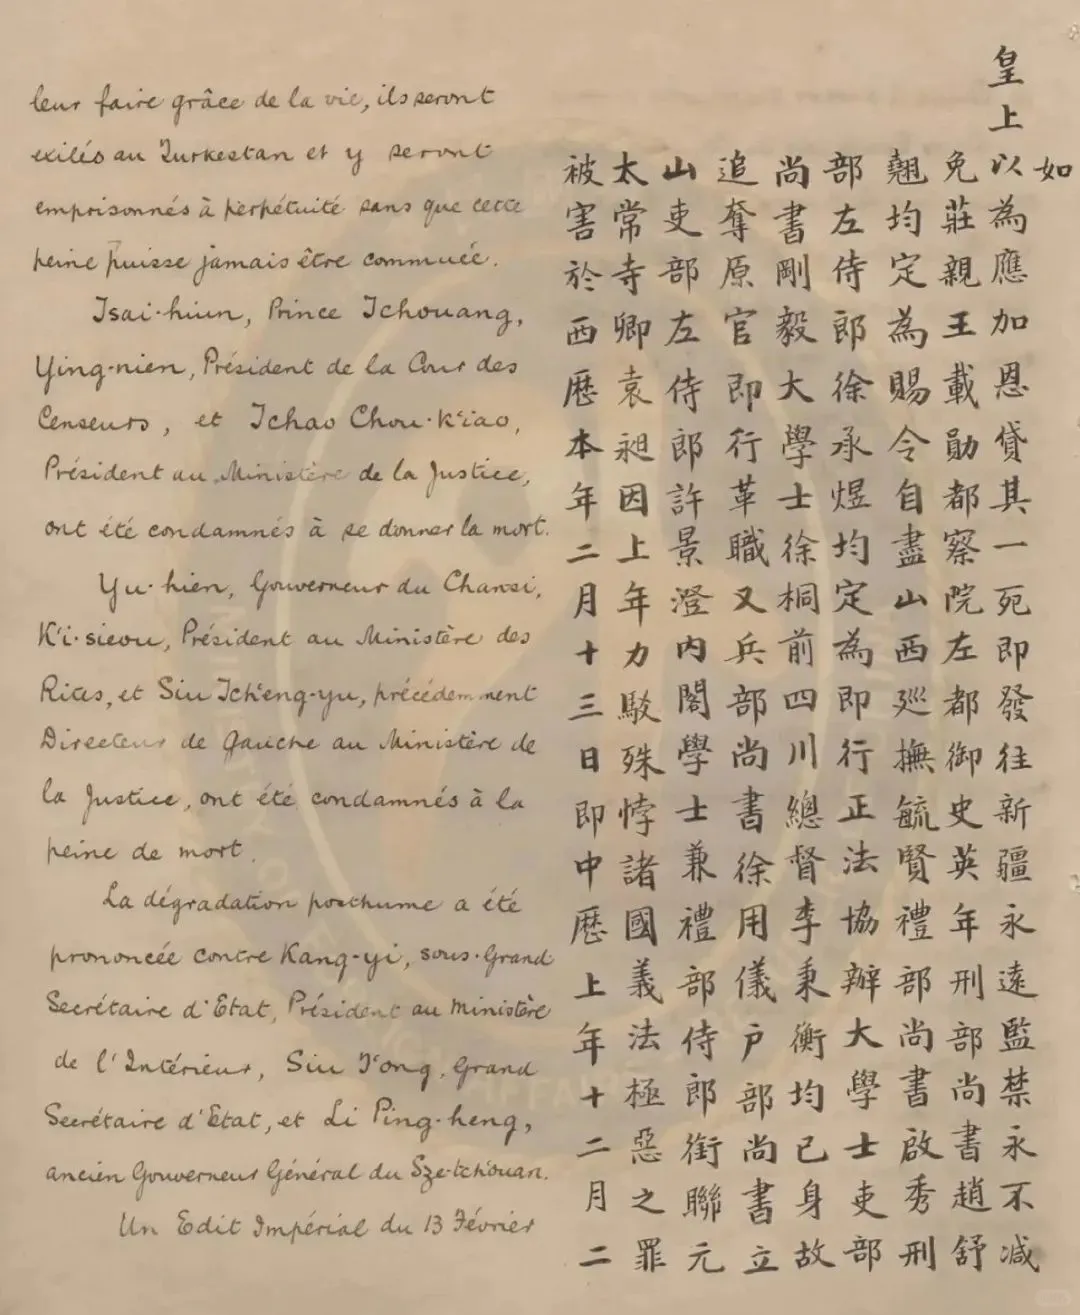 leur faire grâce de la vie, ils seront
exilés au Turkestan et y seront
emprisonnés à perpétuité sans que cette
peine puisse jamais être commuée.
Tsai-hiun, Prince Tchouang,
Ying-nien, Président de la Cour des
Censeurs, et Tchao Chou-k'iao,
Président au Ministère de la Justice,
ont été condamnés à se donner la mort.
Yu-hien, Gouverneur du Chansi,
K'i-sieou, Président au Ministère des
Rites, et Siu Tch'eng-yu, précédemment
Directeur de Gauche au Ministère de
la Justice, ont été condamnés à la
peine de mort.
La dégradation posthume a été
prononcée contre Kang-yi, sous-Grand
Secrétaire d'Etat, Président au Ministère
de l'Intérieur, Siu T'ong, Grand
Secrétaire d'Etat, et Li Ping-heng,
ancien Gouverneur Général du Sze-tch'ouan.
Un Edit Impérial du 13 Février
如
皇上以為應加恩貸其一死即發往新疆永遠監禁永不減
免莊親王載勛都察院左都御史英年刑部尚書趙舒
翹均定為賜令自盡山西廵撫毓賢禮部尚書啟秀刑
部左侍郎徐承煜均定為即行正法協辦大學士吏部
尚書剛毅大學士徐桐前四川總督李秉衡均已身故
追奪原官即行革職又兵部尚書徐用儀戶部尚書立
山吏部左侍郎許景澄內閣學士兼禮部侍郎銜聯元
太常寺卿袁昶因上年力駁殊悖諸國義法極惡之罪
被害於西歷本年二月十三日即中歷上年十二月二